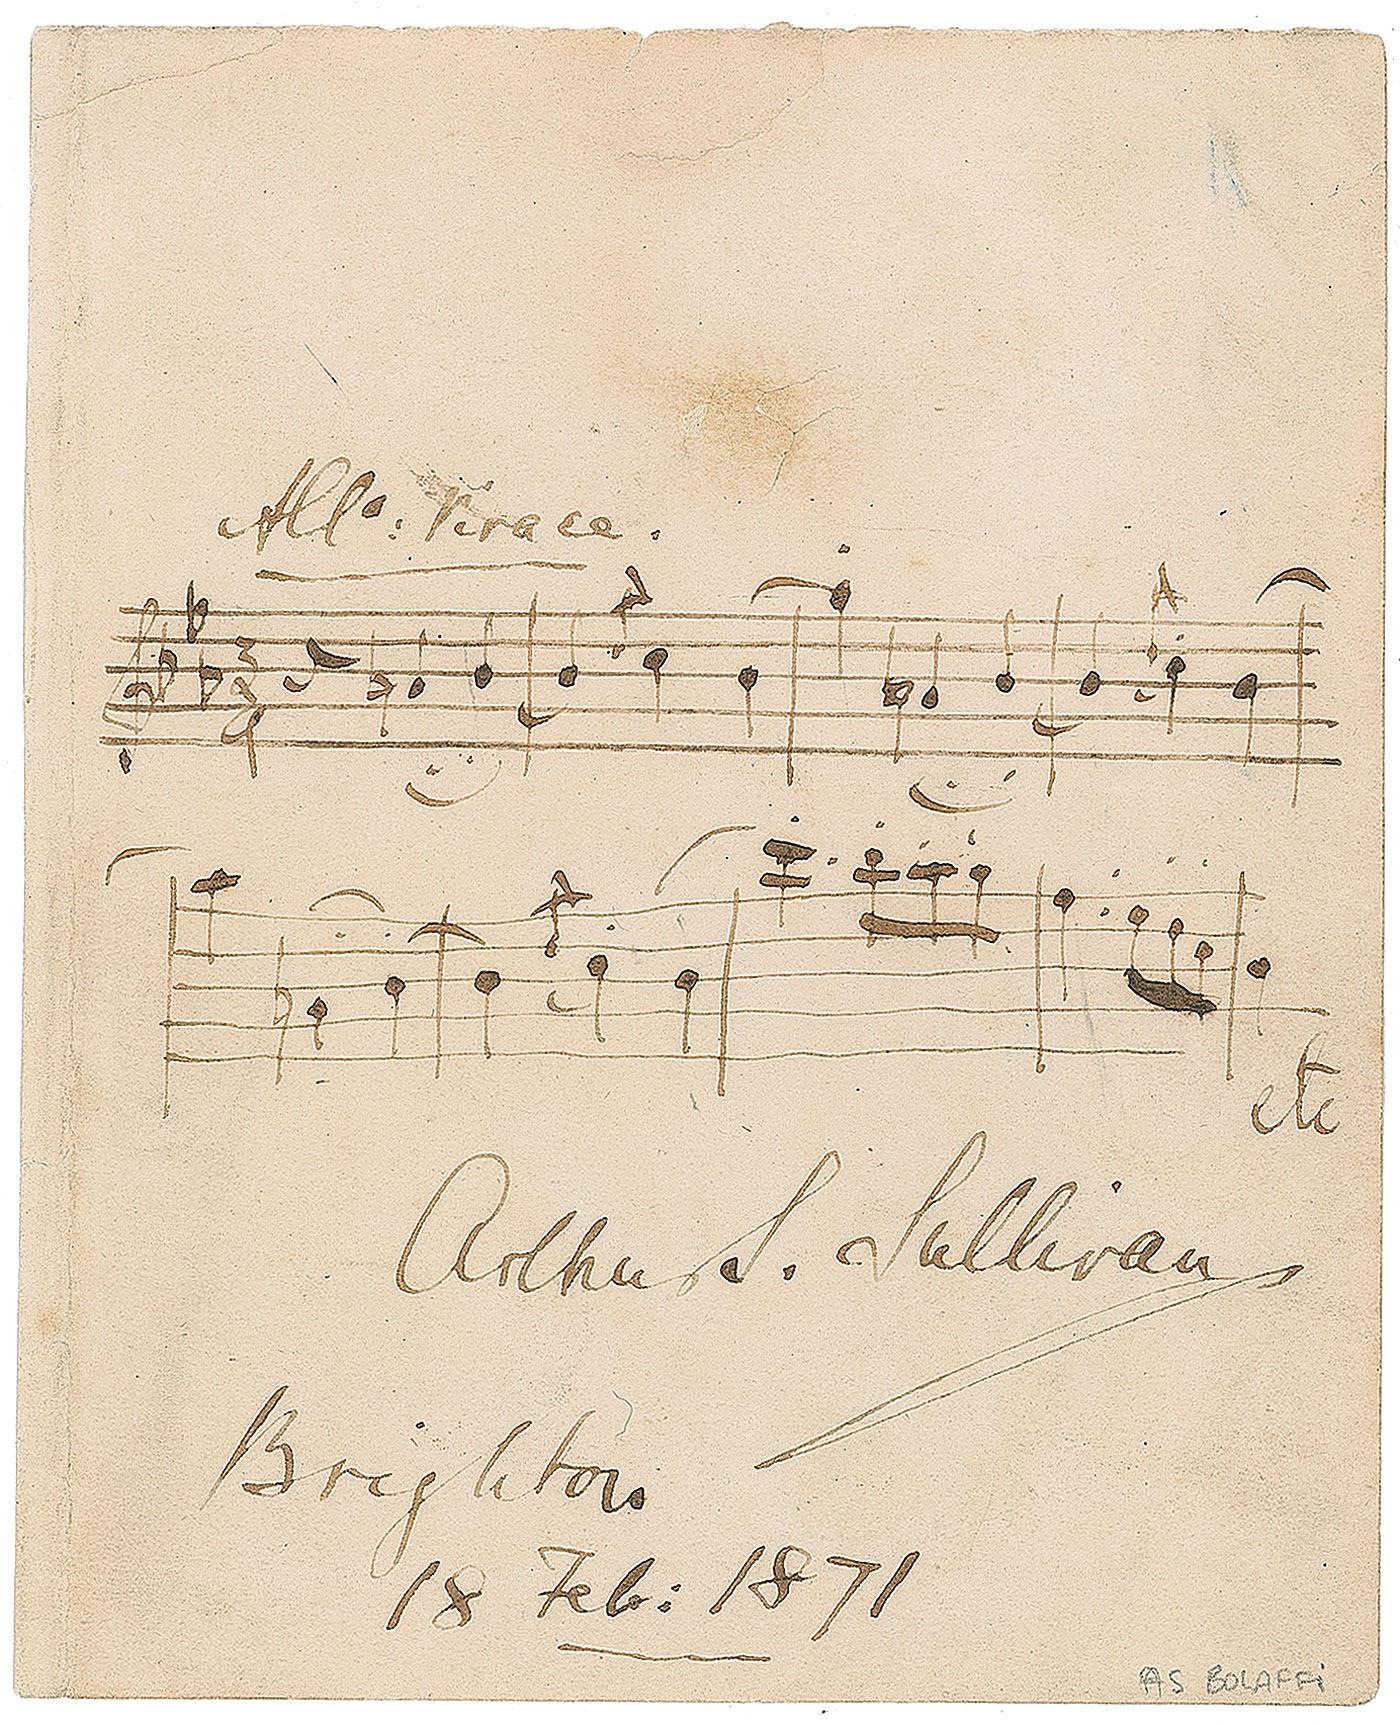 Allo: Vivace.
3
4
etc
Arthur S. Sullivan
Brighton.
18 Feb: 1871
AS BOLAFFI